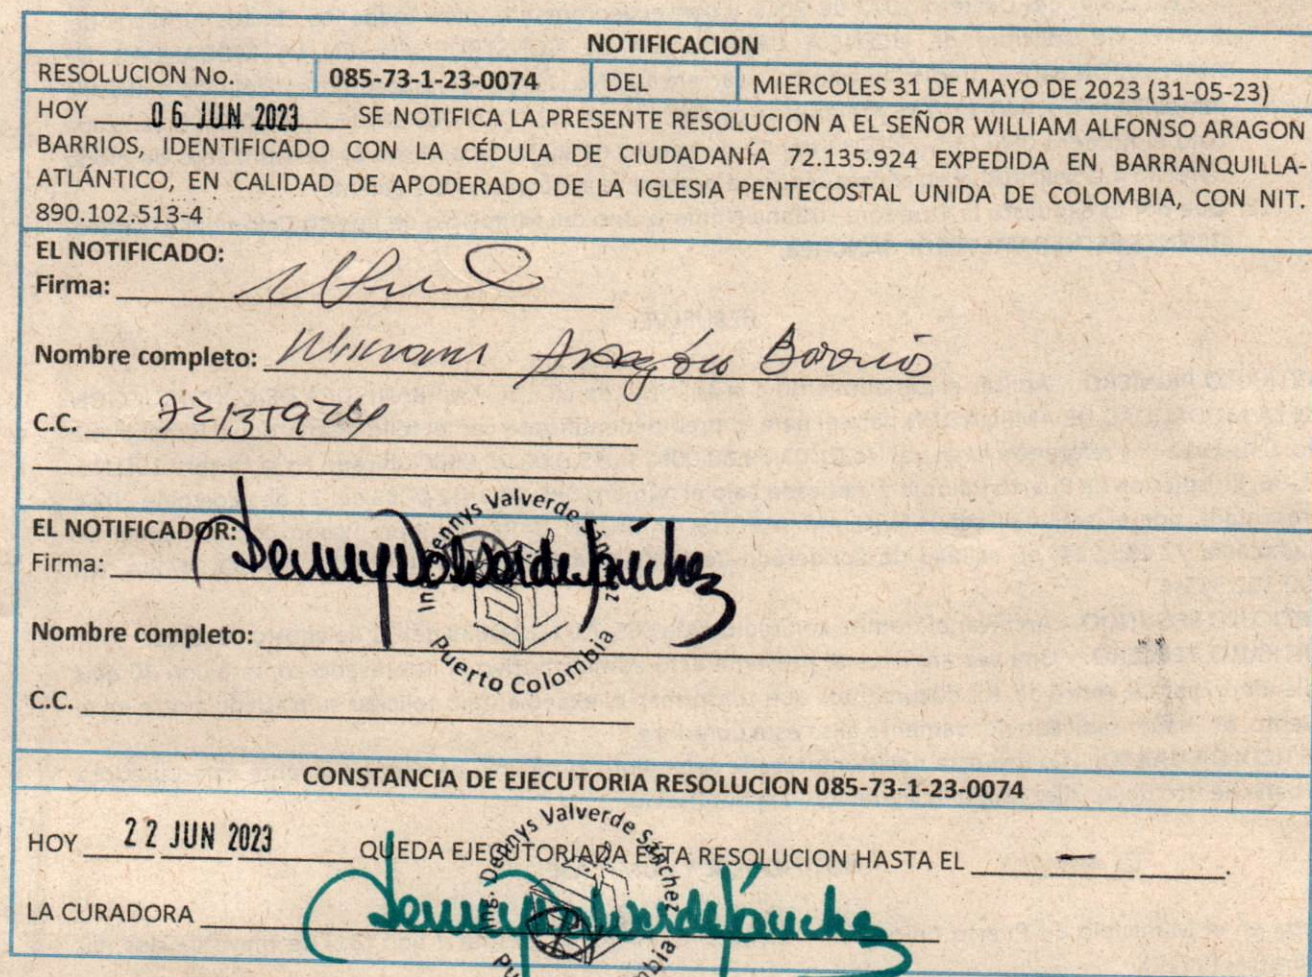 NOTIFICACION
RESOLUCION No. 085-73-1-23-0074 DEL MIERCOLES 31 DE MAYO DE 2023 (31-05-23)
HOY 06 JUN 2023 SE NOTIFICA LA PRESENTE RESOLUCION A EL SEÑOR WILLIAM ALFONSO ARAGON
BARRIOS, IDENTIFICADO CON LA CÉDULA DE CIUDADANÍA 72.135.924 EXPEDIDA EN BARRANQUILLA-
ATLÁNTICO, EN CALIDAD DE APODERADO DE LA IGLESIA PENTECOSTAL UNIDA DE COLOMBIA, CON NIT.
890.102.513-4
EL NOTIFICADO:
Firma:
Nombre completo: William Aragón Barrios
C.C. 72135924
EL NOTIFICADOR:
Firma: Dennys Valverde Sánchez
Ing. Dennys Valverde Sánchez
Puerto Colombia
Nombre completo:
C.C.
CONSTANCIA DE EJECUTORIA RESOLUCION 085-73-1-23-0074
HOY 22 JUN 2023 QUEDA EJECUTORIADA ESTA RESOLUCION HASTA EL —
Ing. Dennys Valverde Sánchez
LA CURADORA Dennys Valverde Sánchez